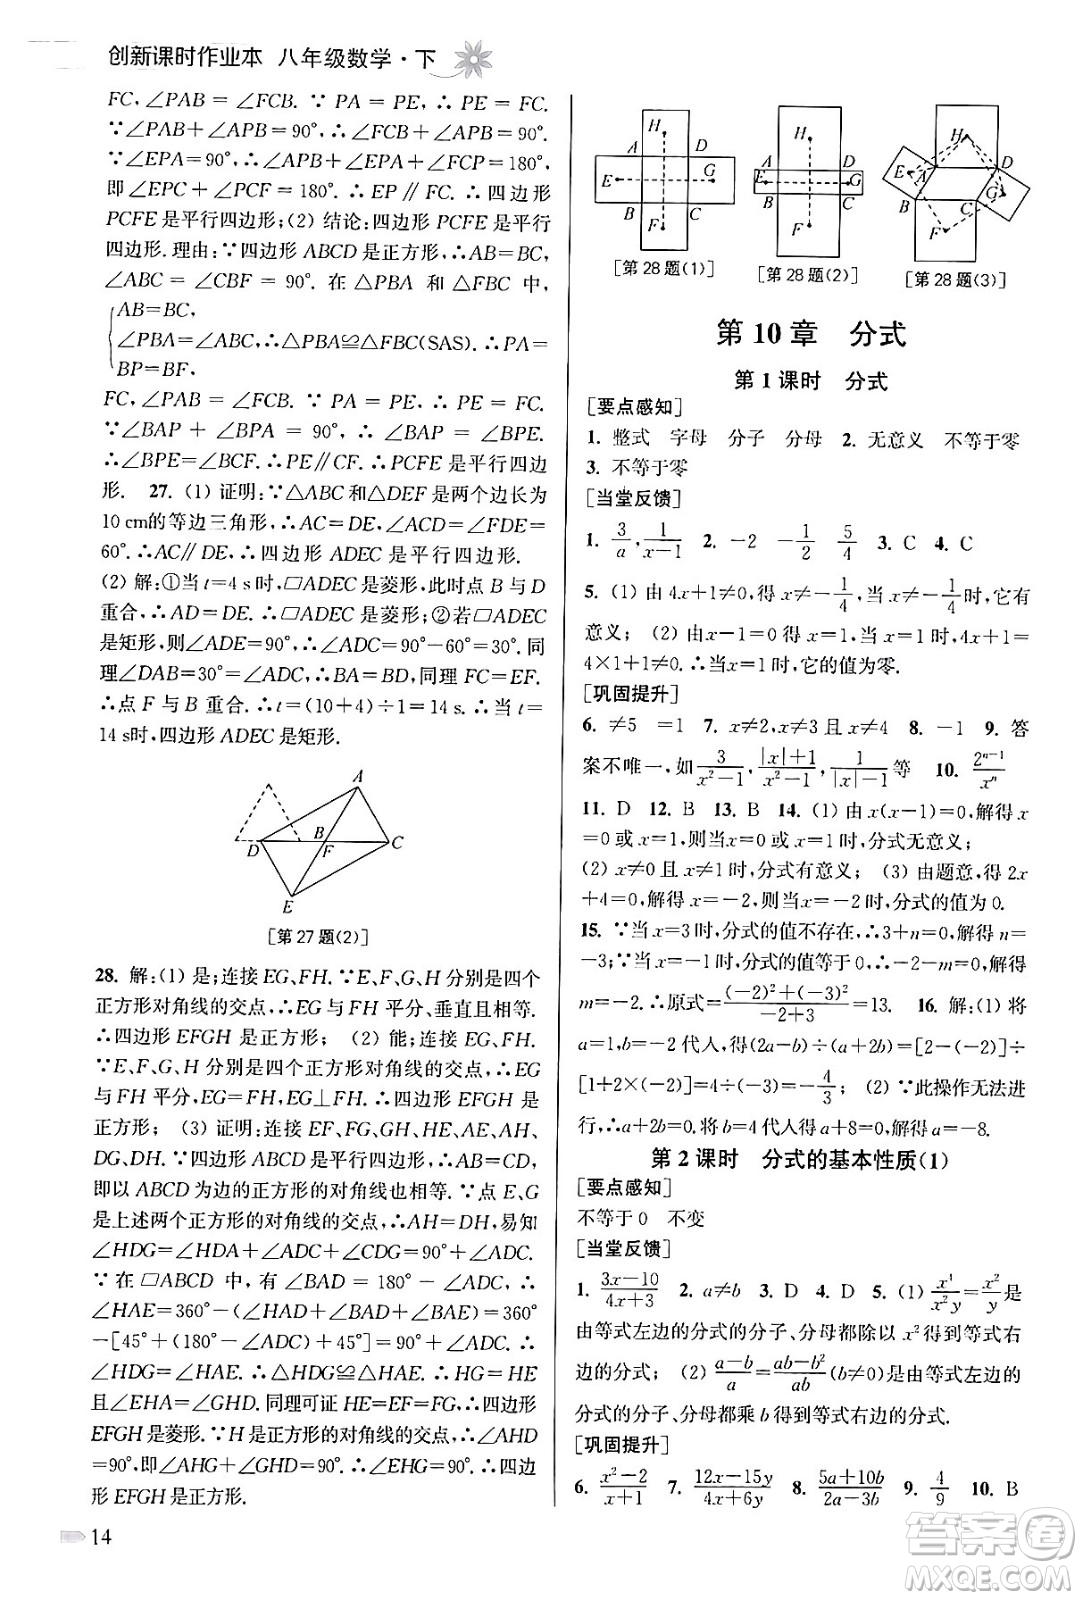 创新课时作业本 八年级数学·下
FC,∠PAB=∠FCB.∵PA=PE,∴PE=FC.
∵∠PAB+∠APB=90°,∴∠FCB+∠APB=90°.
∵∠EPA=90°,∴∠APB+∠EPA+∠FCP=180°,
即∠EPC+∠PCF=180°.∴EP∥FC.∴四边形
PCFE是平行四边形;(2) 结论:四边形PCFE是平行
四边形.理由:∵四边形ABCD是正方形,∴AB=BC,
∠ABC=∠CBF=90°.在△PBA和△FBC中,
AB=BC,
∠PBA=∠FBC,∴△PBA≌△FBC(SAS).∴PA=
BP=BF,
FC,∠PAB=∠FCB.∵PA=PE,∴PE=FC.
∵∠BAP+∠BPA=90°,∴∠BAP=∠BPE.
∴∠BPE=∠BCF.∴PE∥FC.∴PCFE是平行四边
形. 27. (1) 证明:∵△ABC和△DEF是两个边长为
10 cm的等边三角形,∴AC=DE,∠ACD=∠FDE=
60°.∴AC∥DE.∴四边形ADEC是平行四边形.
(2) 解:①当t=4 s时,▱ADEC是菱形,此时点B与D
重合,∴AD=DE.∴▱ADEC是菱形;②若▱ADEC
是矩形,则∠ADE=90°,∴∠ADC=90°−60°=30°.同
理∠DAB=30°=∠ADC.∴BA=BD.同理FC=EF.
∴点F与B重合.∴t=(10+4)÷1=14 s.∴当t=
14 s时,四边形ADEC是矩形.
A
B
D
F
C
E
[第27题(2)]
28. 解:(1) 是;连接EG、FH.∵E、F、G、H分别是四个
正方形对角线的交点,∴EG与FH平分、垂直且相等.
∴四边形EFGH是正方形; (2) 能;连接EG、FH.
∵E、F、G、H分别是四个正方形对角线的交点,∴EG
与FH平分,EG=FH,EG⊥FH.∴四边形EFGH是正
方形; (3) 证明:连接EF、FG、GH、HE、AE、AH、
DG、DH.∵四个图形是以四边形ABCD为平行四边形,
即以ABCD为边的正方形的对角线的交点.∵点E、G
是上述两个正方形的对角线的交点,∴AH=DH,易知
∠HDG=∠HDA+∠ADC+∠CDG=90°+∠ADC.
∵在▱ABCD中,有∠BAD=180°−∠ADC,
∴∠HAE=360°−(∠HAD+∠BAD+∠BAE)=360°
−[45°+(180°−∠ADC)+45°]=90°+∠ADC.
∴∠HDG=∠HAE.∴△HDG≌△HAE.∴HG=HE
∠EHA=∠GHD.同理可证HE=EF=FG=GH.∴四边形
EFGH是菱形.∵H是正方形的对角线的交点,∴∠AHD
=90°,即∠AHG+∠GHD=90°,∴∠EHG=90°.∴四边
形EFGH是正方形.
14
H
A D
E G
B C
F
[第28题(1)]
H
A D
E G
B C
F
[第28题(2)]
H
E A D
G
B C
F
[第28题(3)]
第10章 分式
第1课时 分式
[要点感知]
1. 整式 字母 分子 分母 2. 无意义 不等于零
3. 不等于零
[当堂反馈]
1. 3/a, 1/(x−1) 2. −2 −1/2 5/4 3. C 4. C
5. (1) 由4x+1≠0,得x≠−1/4,当x≠−1/4时,它有
意义; (2) 由x−1=0得x=1,当x=1时,4x+1=
4×1+1≠0.∴当x=1时,它的值为零.
[巩固提升]
6. ≠5 =1 7. x≠2,x≠3且x≠4 8. −1 9. 答
案不唯一,如3/(x²−1),(|x|+1)/(x²−1),1/(|x|−1)等 10. 2ⁿ⁻¹/xⁿ
11. D 12. B 13. B 14. (1) 由x(x−1)=0,解得x
=0或x=1,则当x=0或x=1时,分式无意义;
(2) x≠0且x≠1时,分式有意义; (3) 由题意,得2x
+4=0,解得x=−2,当x=−2时,分式的值为0.
15. ∵当x=3时,分式的值不存在,∴3+n=0,n=
−3;∵当x=2时,分式的值等于0,∴2−m=0,
m=−2.∴原式=((−2)²+(−3)²)/(−2+3)=13. 16. 解:(1) 将
a=1,b=−2代人,得(2a−b)÷(a+2b)=[2−(−2)]÷
[1+2×(−2)]=4÷(−3)=−4/3; (2) ∵此操作无法进
行,∴a+2b=0,将b=4代人得a+8=0,解得a=−8.
第2课时 分式的基本性质(1)
[要点感知]
不等于0 不变
[当堂反馈]
1. (3x−10)/(4x+3) 2. a≠b 3. D 4. D 5. (1) x⁴/(x²y)=x²/y是
由等式左边的分子、分母都除以x²得到等式右
边的分式; (2) (a−b)/a=(ab−b²)/(ab)(b≠0)是由等式左边
分式的分子、分母都乘b得到等式右边的分式.
[巩固提升]
6. (x²−2)/(x+1) 7. (12x−15y)/(4x+6y) 8. (5a+10b)/(2a−5b) 9. 4/9 10. B
答案卷
MXQE.COM